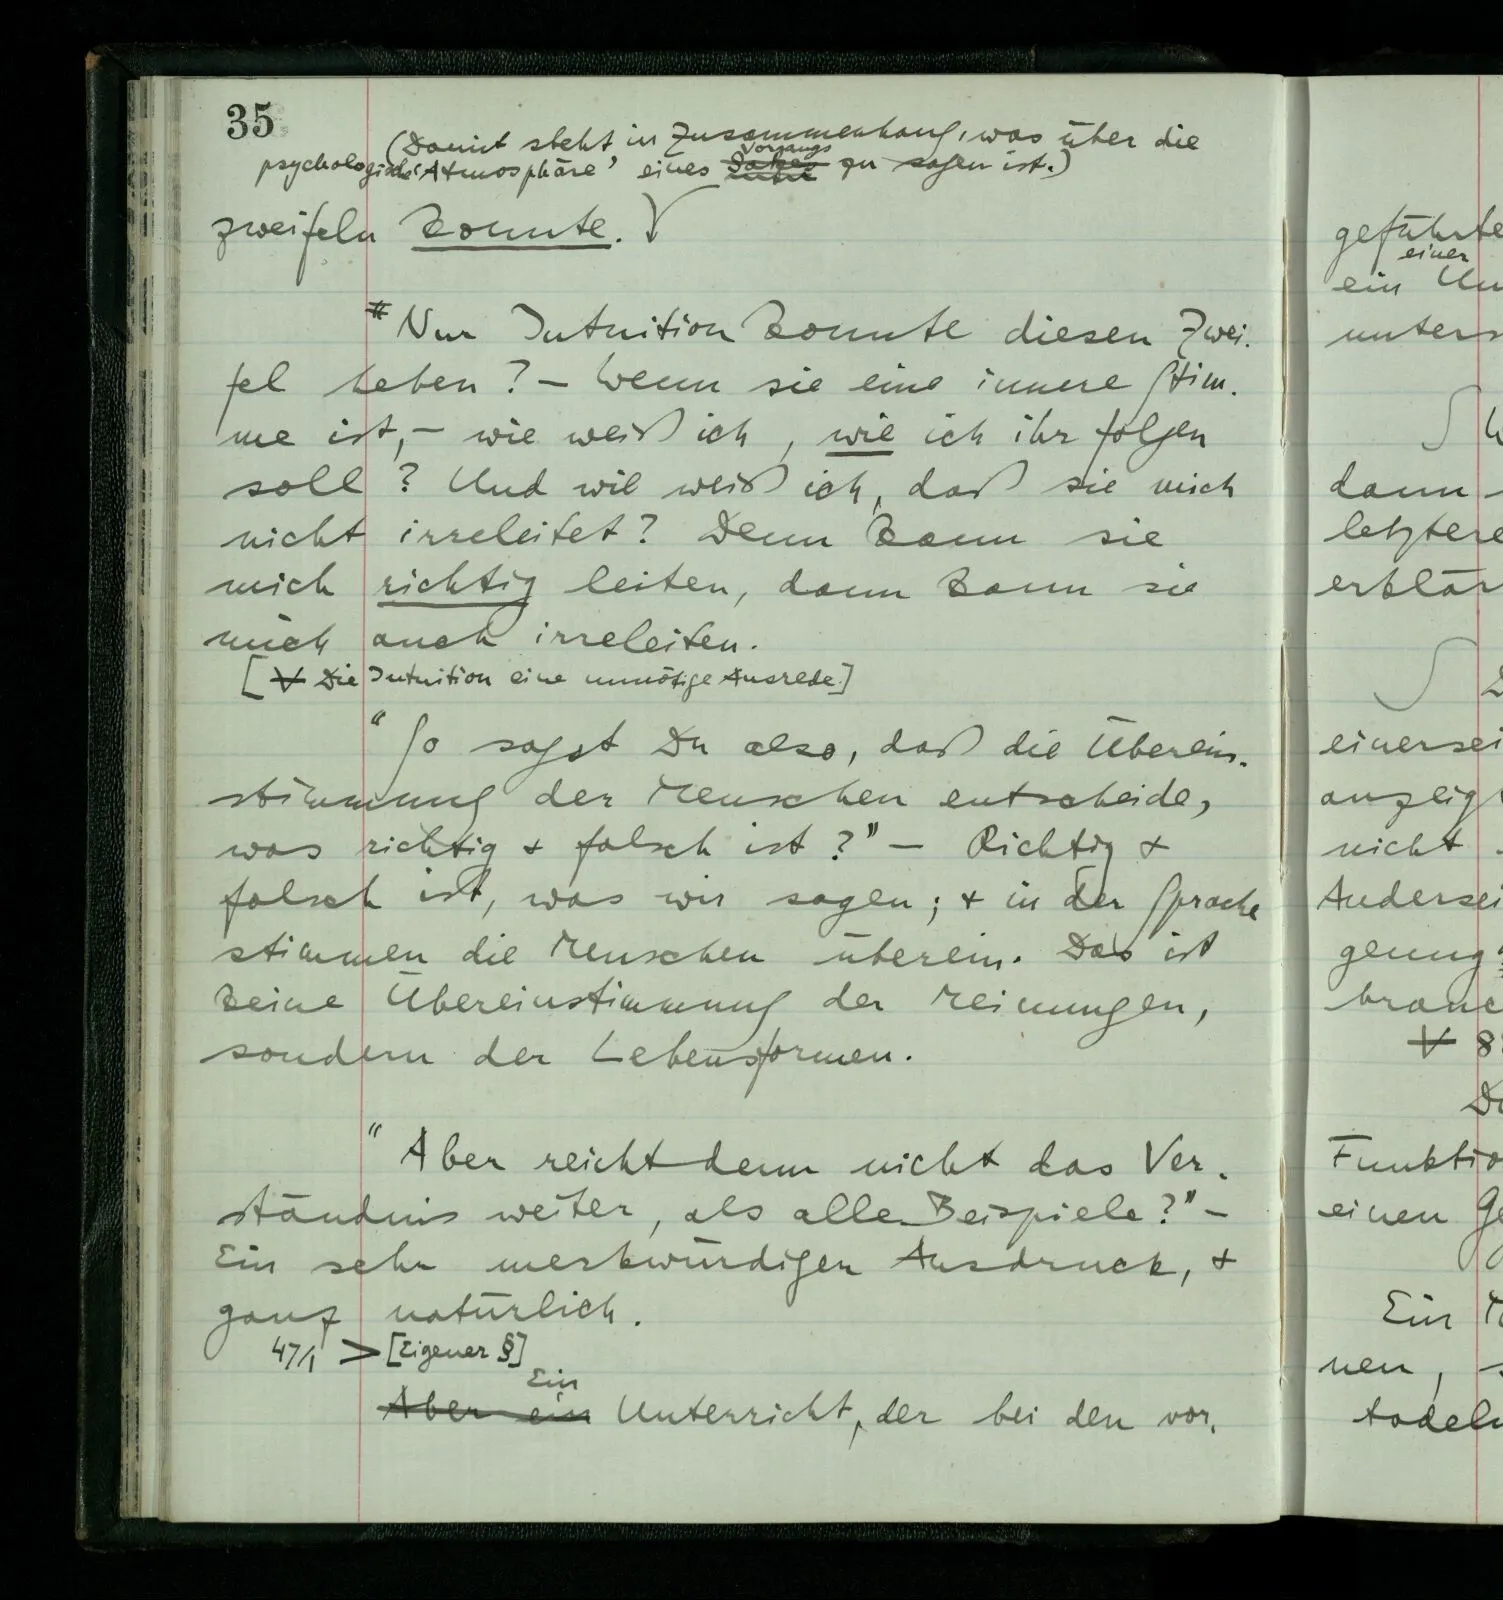 35
(Damit steht in Zusammenhang, was über die
psychologische ‘Atmosphäre’ eines Vorgangs zu sagen ist.)
zweifeln konnte.
Nur Intuition konnte diesen Zwei-
fel heben? – Wenn sie eine innere Stim-
me ist, – wie weiß ich, wie ich ihr folgen
soll? Und wie weiß ich, daß sie mich
nicht irreleitet? Denn kann sie
mich richtig leiten, dann kann sie
mich auch irreleiten.
[Die Intuition eine unnötige Ausrede.]
“So sagst Du also, daß die Überein-
stimmung der Menschen entscheide,
was richtig & falsch ist?” – Richtig &
falsch ist, was wir sagen; & in der Sprache
stimmen die Menschen überein. Das ist
keine Übereinstimmung der Meinungen,
sondern der Lebensformen.
“Aber reicht denn nicht das Ver-
ständnis weiter, als alle Beispiele?” –
Ein sehr merkwürdiger Ausdruck, &
ganz natürlich.
47/1 > [Eigener §]
Ein
Aber ein Unterricht, der bei den vor-
geführte
einer
ein
dann
letztere
einersei
nicht
Andersei
genug
Funktio
einen
Ein
nen,
tadeln